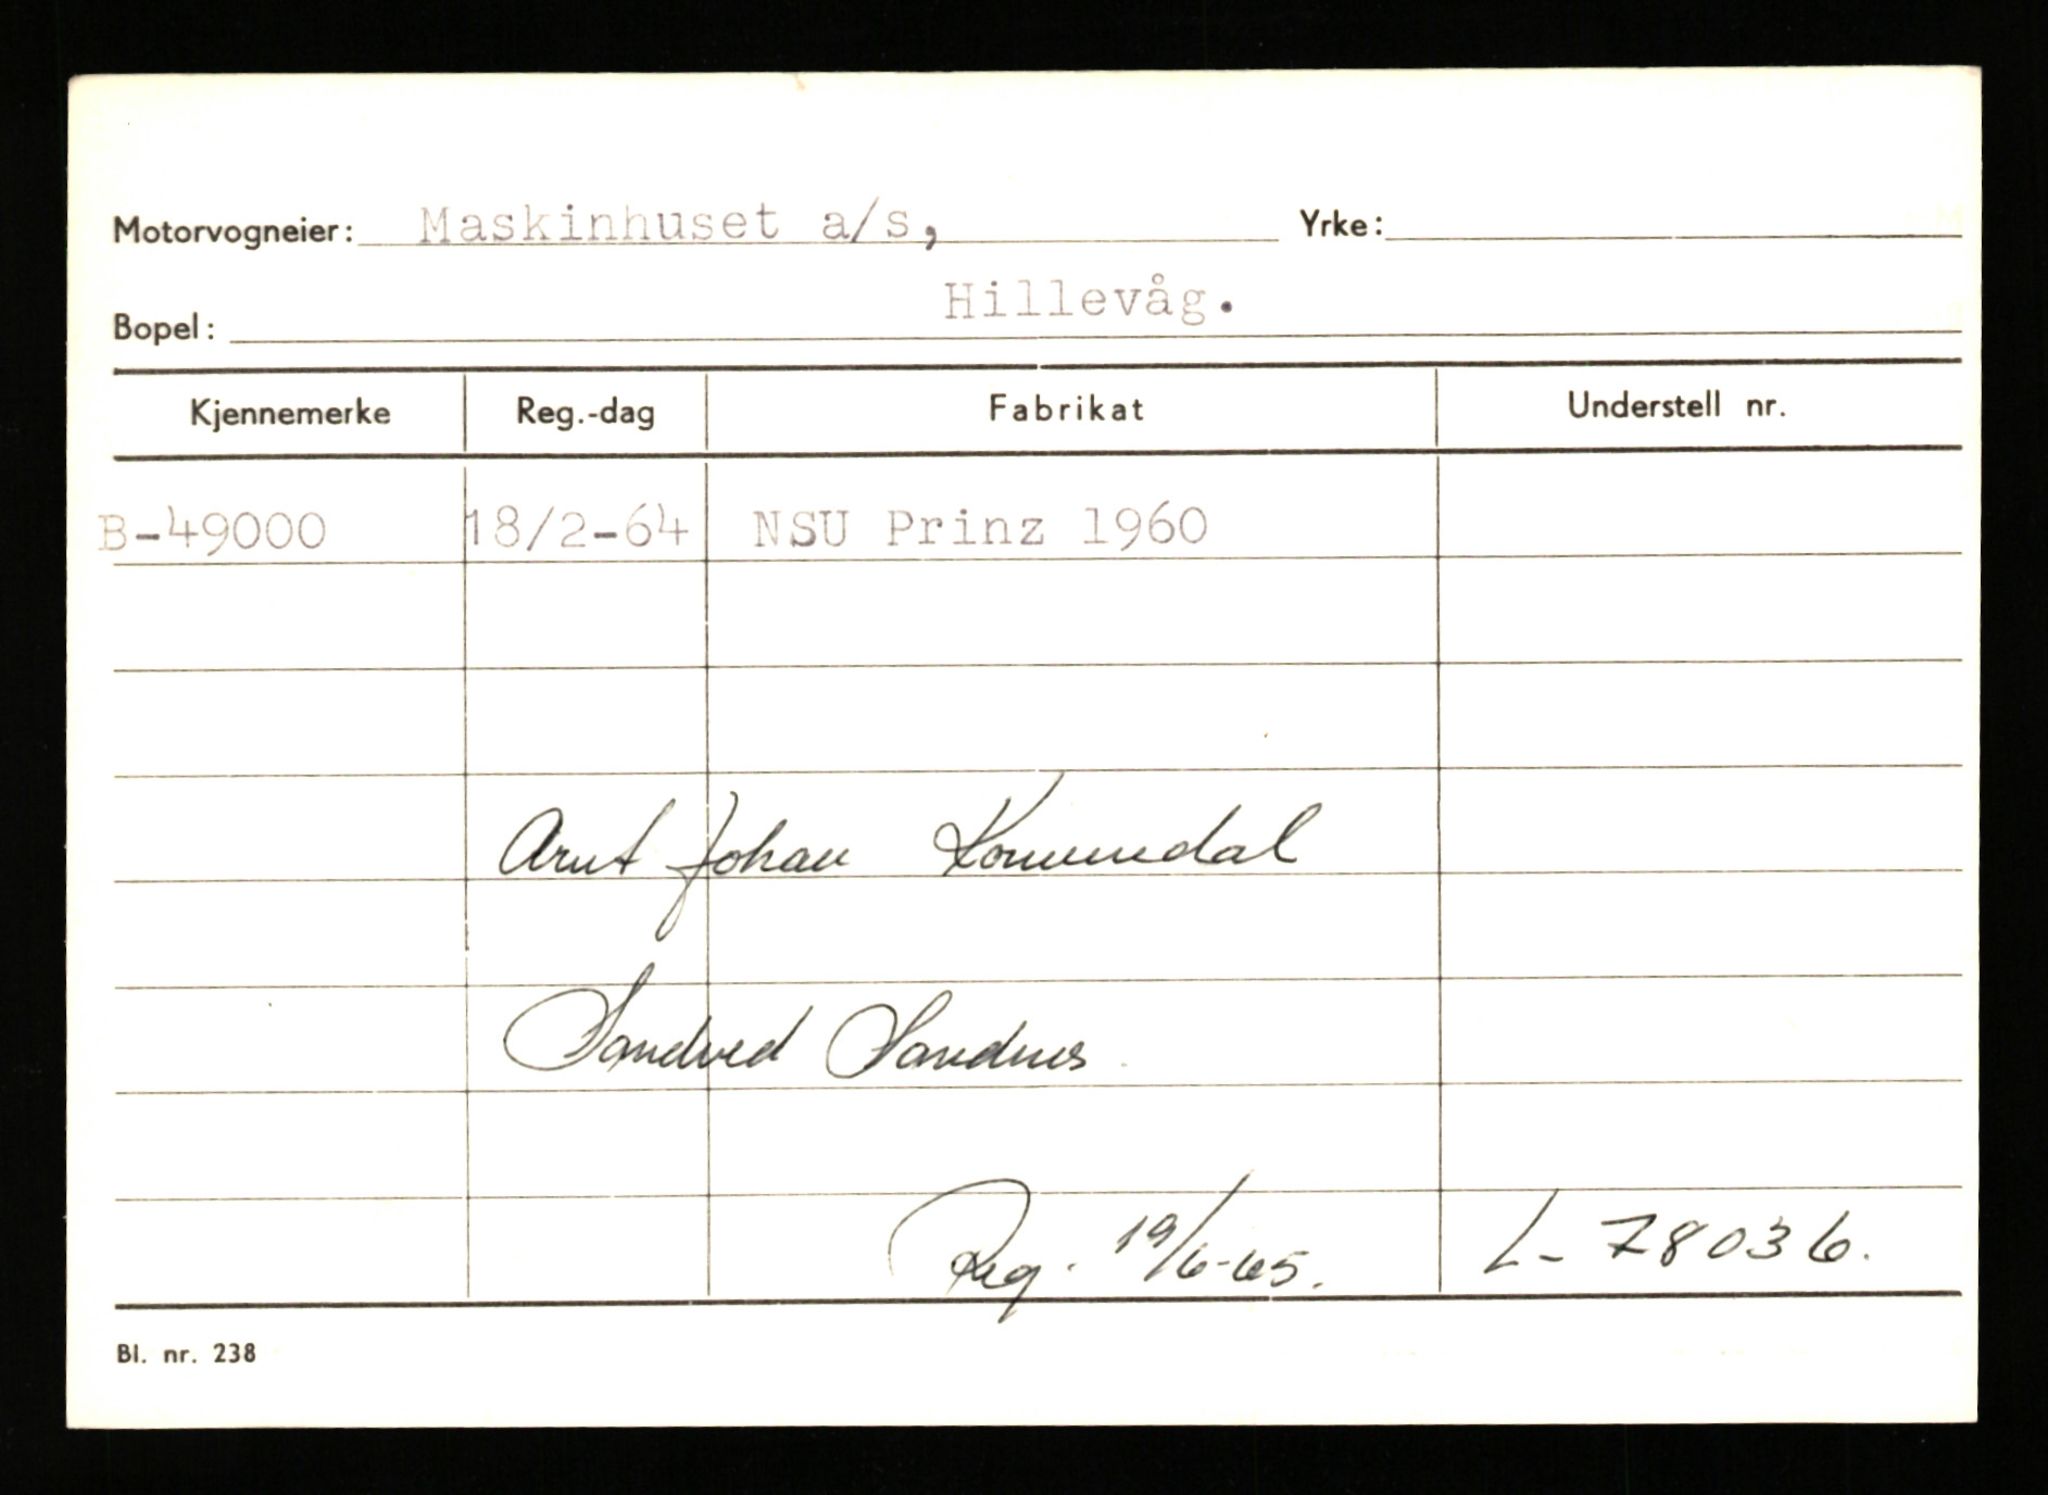 Motorvogneier: Maskinhuset a/s, Yrke:
Bopel: Hillevåg.
Kjennemerke Reg.-dag Fabrikat Understell nr.
B-49000 18/2-64 NSU Prinz 1960
Arnt Johan Kommedal
Sandved Sandnes
Reg. 19/6-65. L-78036.
Bl. nr. 238